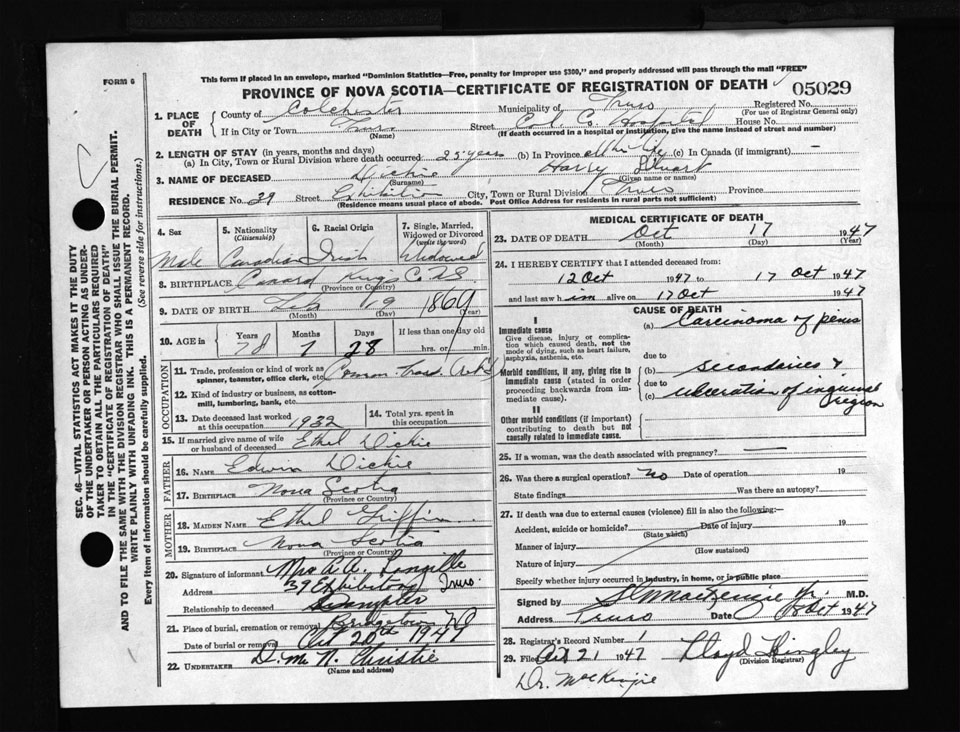 This form if placed in an envelope, marked "Dominion Statistics—Free, penalty for improper use $300," and properly addressed will pass through the mail "FREE"
FORM 6
PROVINCE OF NOVA SCOTIA—CERTIFICATE OF REGISTRATION OF DEATH
05029
1. PLACE OF DEATH
County of Colchester
Municipality of Truro
Registered No.
(For use of Registrar General only)
If in City or Town Truro
(Name)
Street Col. Co. Hospital
House No.
(If death occurred in a hospital or institution, give the name instead of street and number)
2. LENGTH OF STAY (in years, months and days)
(a) In City, Town or Rural Division where death occurred 25 years (b) In Province all his life (c) In Canada (if immigrant) —
3. NAME OF DECEASED Dickie Harry Stuart
(Surname) (Given name or names)
RESIDENCE No. 39 Street Exhibition City, Town or Rural Division Truro Province
(Residence means usual place of abode. Post Office Address for residents in rural parts not sufficient)
4. Sex
Male
5. Nationality
(Citizenship)
Canadian
6. Racial Origin
Irish
7. Single, Married, Widowed or Divorced
(write the word)
Widowed
8. BIRTHPLACE Canard Kings C. N.S.
(Province or Country)
9. DATE OF BIRTH Feb 19 1869
(Month) (Day) (Year)
10. AGE in
Years 78
Months 7
Days 28
If less than one day old
hrs. or min.
OCCUPATION
11. Trade, profession or kind of work as spinner, teamster, office clerk, etc.
12. Kind of industry or business, as cotton-mill, lumbering, bank, etc.
13. Date deceased last worked at this occupation 1932
14. Total yrs. spent in this occupation
15. If married give name of wife or husband of deceased Ethel Dickie
FATHER
16. NAME Edwin Dickie
17. BIRTHPLACE Nova Scotia
(Province or Country)
MOTHER
18. MAIDEN NAME Ethel Griffin
19. BIRTHPLACE Nova Scotia
(Province or Country)
20. Signature of informant Mrs A. A. Langille
Address 39 Exhibition, Truro.
Relationship to deceased
21. Place of burial, cremation or removal Bridgetown
Date of burial or removal Oct 20th 1947
22. UNDERTAKER D. Mc N. Christie
(Name and address)
MEDICAL CERTIFICATE OF DEATH
23. DATE OF DEATH Oct 17 1947
(Month) (Day) (Year)
24. I HEREBY CERTIFY that I attended deceased from
12 Oct 1947 to 17 Oct 1947
and last saw him alive on 17 Oct 1947
CAUSE OF DEATH
I
Immediate cause
Give disease, injury or complication which caused death, not the mode of dying, such as heart failure, asphyxia, asthenia, etc.
(a) Carcinoma of penis
due to
Morbid conditions, if any, giving rise to immediate cause (stated in order proceeding backwards from immediate cause).
(b) Secondaries &
due to
(c) ulceration of inguinal region
II
Other morbid conditions (if important) contributing to death but not causally related to immediate cause.
25. If a woman, was the death associated with pregnancy? —
26. Was there a surgical operation? no Date of operation 19
State findings Was there an autopsy?
27. If death was due to external causes (violence) fill in also the following:
Accident, suicide or homicide? Date of injury 19
(State which)
Manner of injury
(How sustained)
Nature of injury
Specify whether injury occurred in industry, in home, or in public place
Signed by S. G. MacKenzie Jr. M.D.
Address Truro Date 18 Oct 1947
28. Registrar's Record Number 1
29. Filed Oct 21 1947 Lloyd Kingley
(Division Registrar)
Dr. McKenzie
SEC. 46—VITAL STATISTICS ACT MAKES IT THE DUTY
OF THE UNDERTAKER OR PERSON ACTING AS UNDER-
TAKER TO OBTAIN ALL THE PARTICULARS REQUIRED
IN THE "CERTIFICATE OF REGISTRATION OF DEATH"
AND TO FILE THE SAME WITH THE DIVISION REGISTRAR WHO SHALL ISSUE THE BURIAL PERMIT.
WRITE PLAINLY WITH UNFADING INK. THIS IS A PERMANENT RECORD.
Every item of information should be carefully supplied. (See reverse side for instructions.)